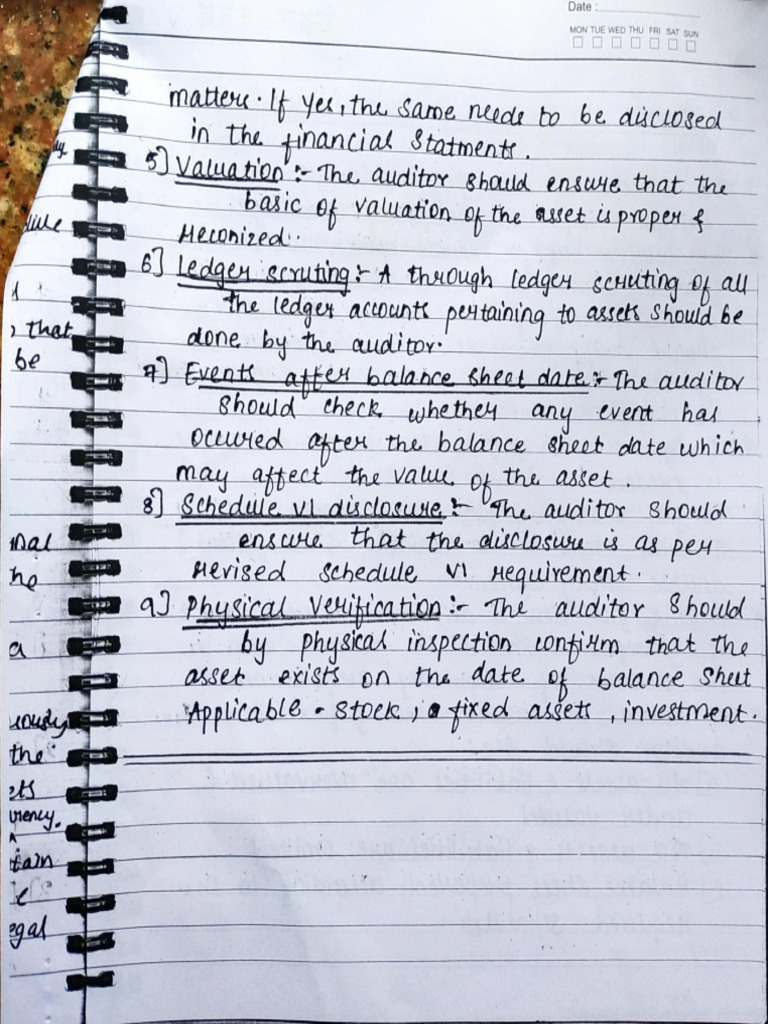 Date :
MON TUE WED THU FRI SAT SUN
matters. If yes, the same needs to be disclosed
in the financial Statments.
5] Valuation :- The auditor should ensure that the
basic of valuation of the asset is proper &
reconized.
6] Ledger scruting :- A through ledger scruting of all
the ledger accounts pertaining to assets should be
done by the auditor.
7] Events after balance sheet date :- The auditor
should check whether any event has
occured after the balance sheet date which
may affect the value of the asset.
8] Schedule VI disclosure :- The auditor should
ensure that the disclosure is as per
revised schedule VI requirement.
9] Physical Verification :- The auditor should
by physical inspection confirm that the
asset exists on the date of balance sheet
Applicable - Stock, fixed assets, investment.
that
be
he
a
the
egal